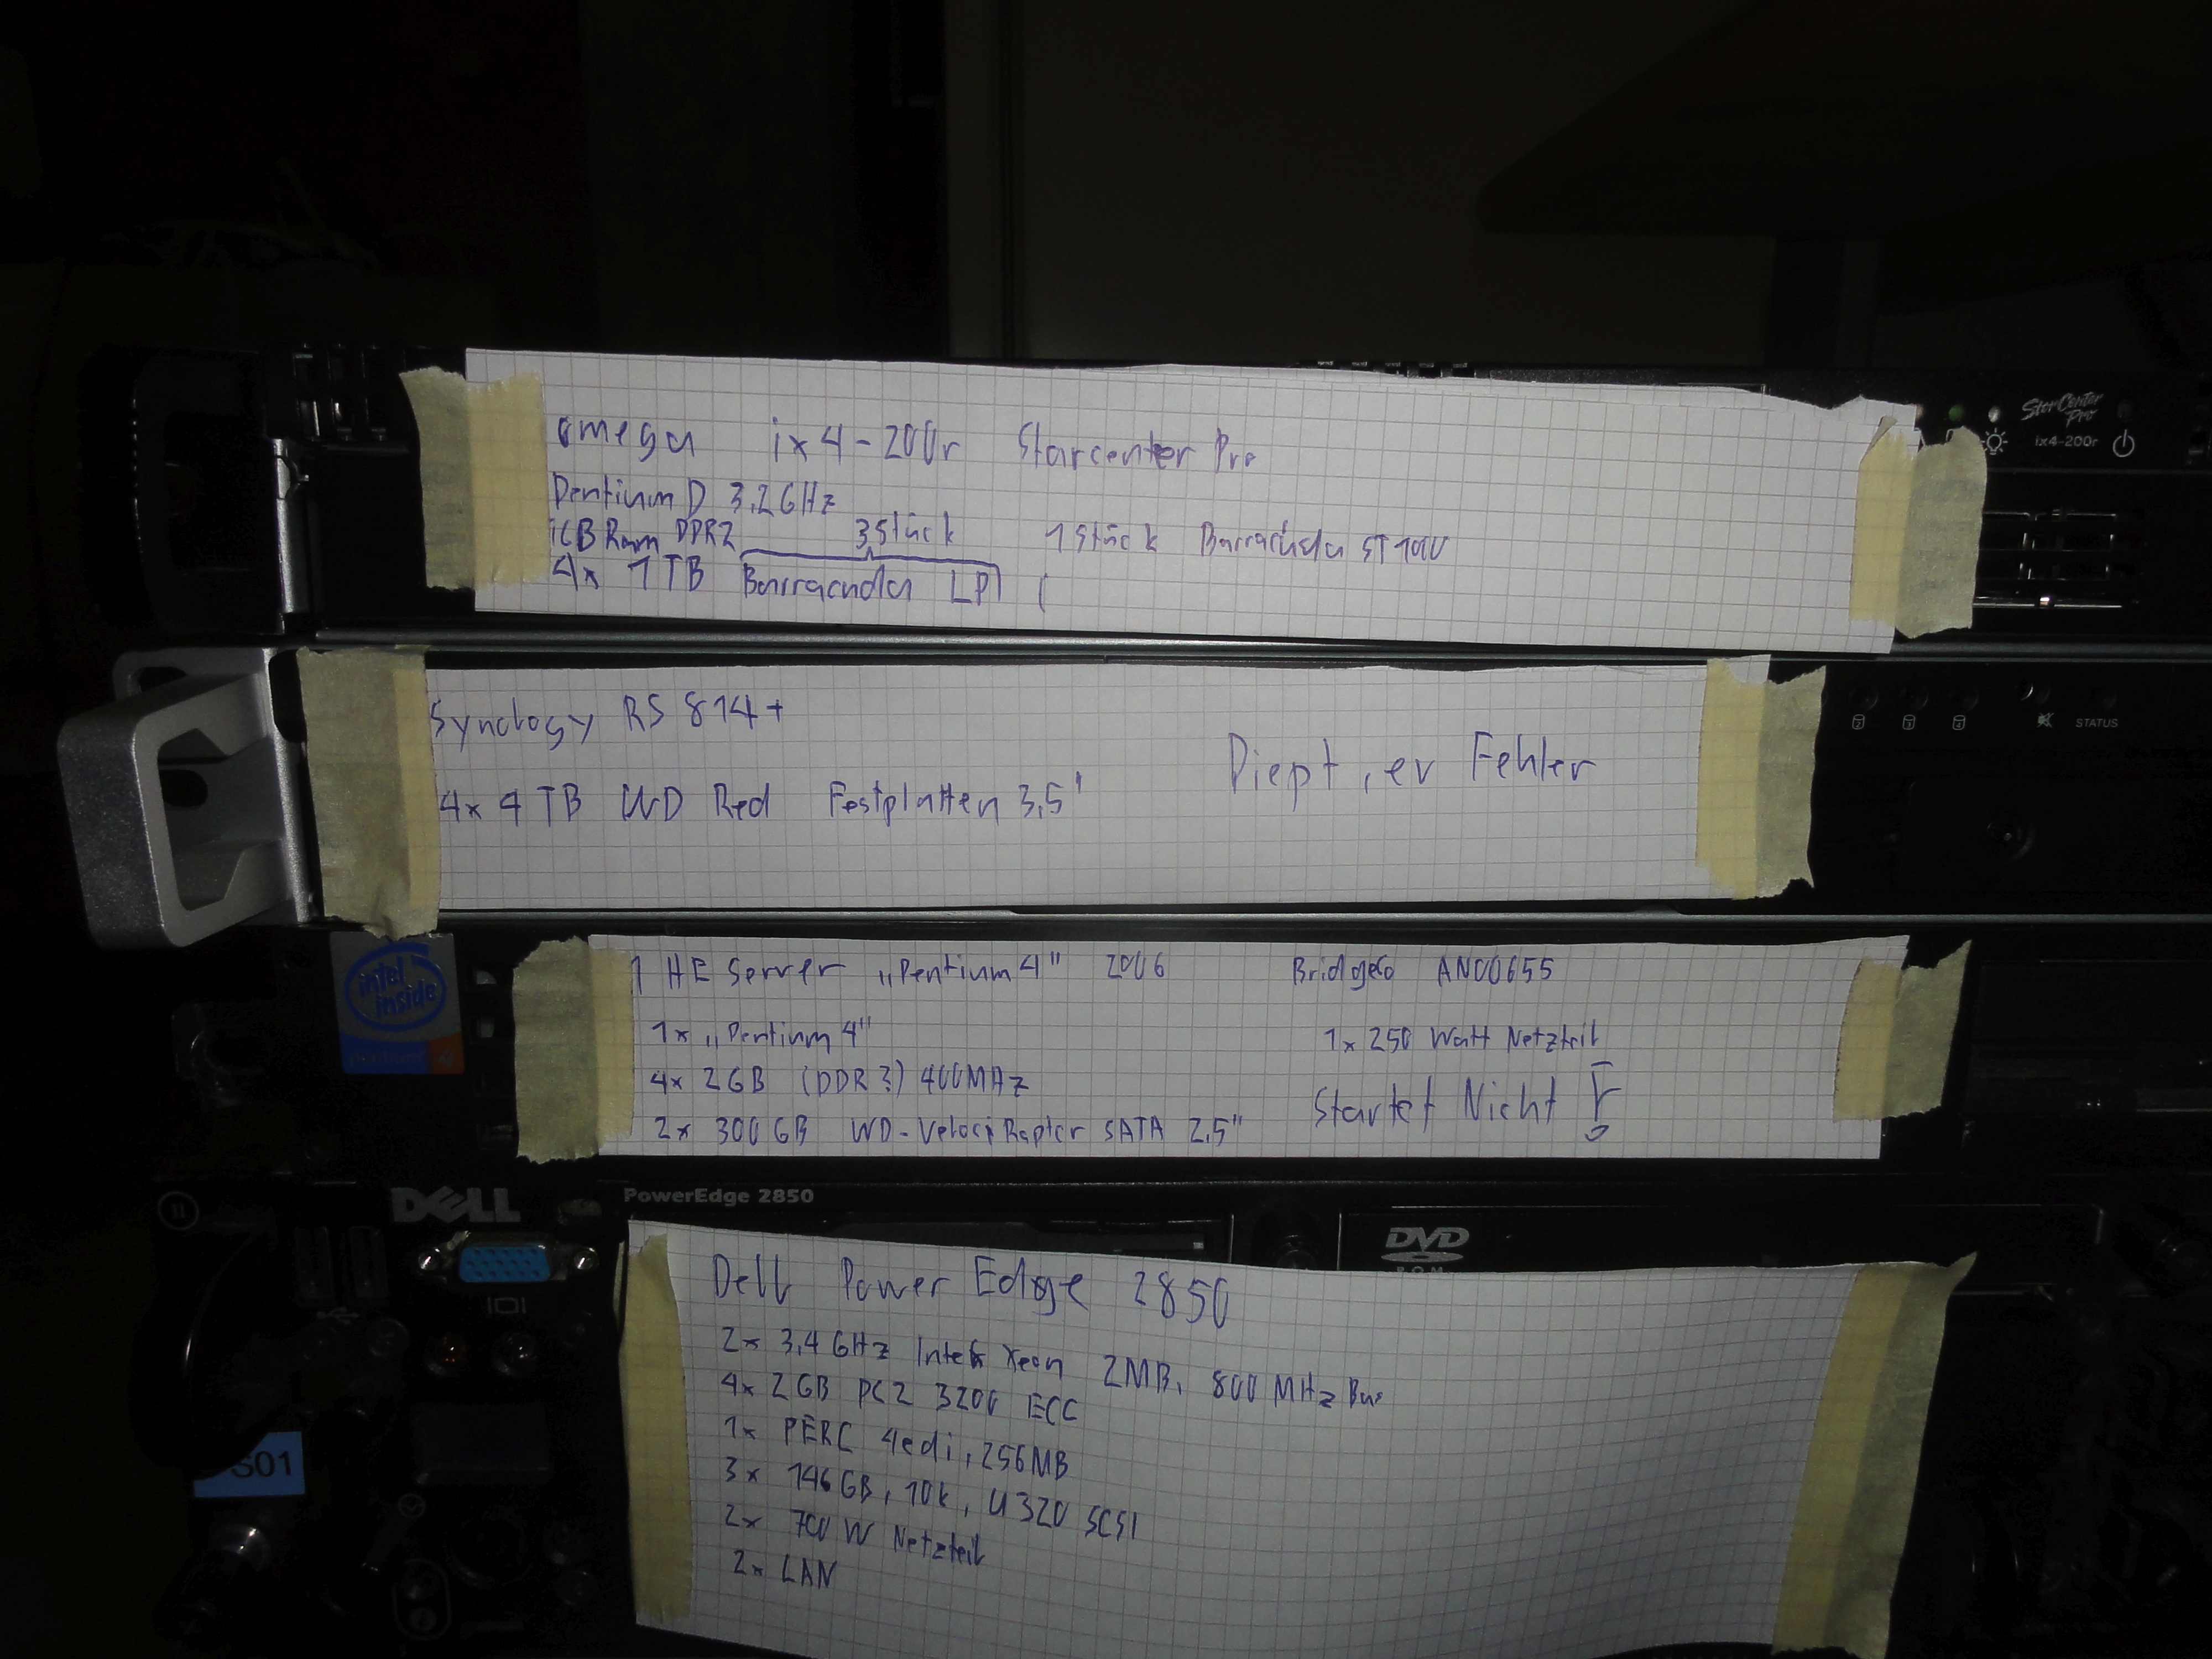 StorCenter
Pro
ix4-200r
omega ix4-200r Starcenter Pro
Pentium D 3,2GHz
1GB Ram DDR2 3 Stück 1 Stück Barracuda
4x 1TB Barracuda LP (
STATUS
Synology RS 814+
Piept, ev Fehler
4x 4TB WD Red Festplatten 3,5"
intel
inside
pentium 4
1 HE Server „Pentium 4" 2006 BridgeCo AN00655
1x „Pentium 4" 1x 250 Watt Netzteil
4x 2GB (DDR?) 400MHz Startet Nicht !
2x 300GB WD-VelociRaptor SATA 2,5"
DELL
PowerEdge 2850
DVD
ROM
Dell Power Edge 2850
2x 3,4 GHz Intel Xeon 2MB, 800 MHz Bus
4x 2GB PC2 3200 ECC
1x PERC 4edi, 256MB
3x 146GB, 10k, U320 SCSI
2x 700W Netzteil
2x LAN
S01